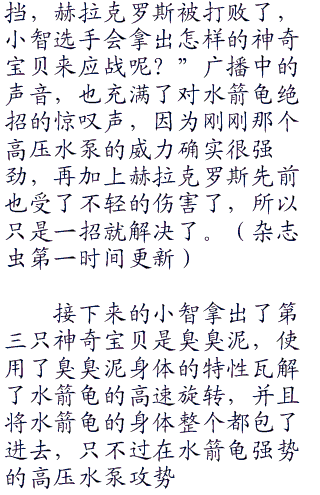 挡，赫拉克罗斯被打败了，
小智选手会拿出怎样的神奇
宝贝来应战呢？”广播中的
声音，也充满了对水箭龟绝
招的惊叹声，因为刚刚那个
高压水泵的威力确实很强
劲，再加上赫拉克罗斯先前
也受了不轻的伤害了，所以
只是一招就解决了。（杂志
虫第一时间更新）
接下来的小智拿出了第
三只神奇宝贝是臭臭泥，使
用了臭臭泥身体的特性瓦解
了水箭龟的高速旋转，并且
将水箭龟的身体整个都包了
进去，只不过在水箭龟强势
的高压水泵攻势